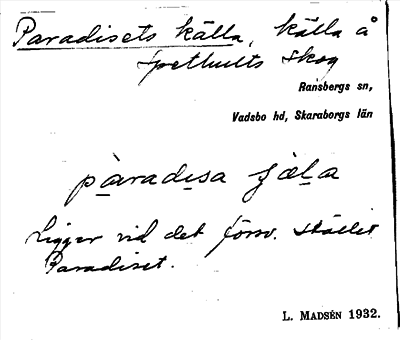 Paradisets källa, källa å
Spethults skog
Ransbergs sn,
Vadsbo hd, Skaraborgs län
pàradisa ʃæla
Ligger vid det försv. stället
Paradiset.
L. Madsén 1932.